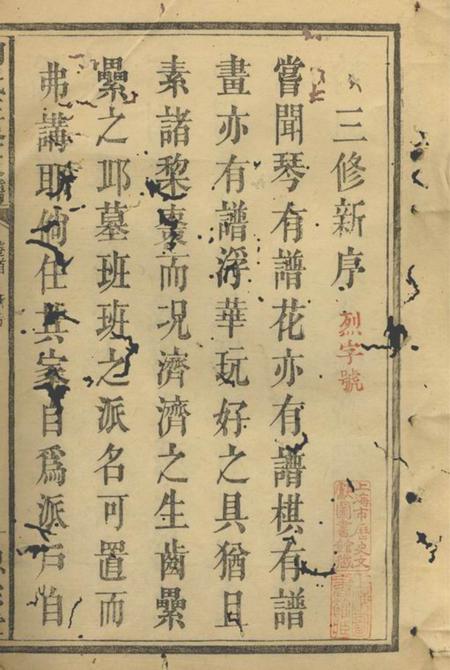 三修新序
烈字號
嘗聞琴有譜花亦有譜棋有譜
畫亦有譜浮華玩好之具猶且
素諸棃棗而况濟濟之生齒纍
纍之邱墓班班之派名可置而
弗講耶倘任其家自爲派戶自
上海市歷史文
獻圖書館藏